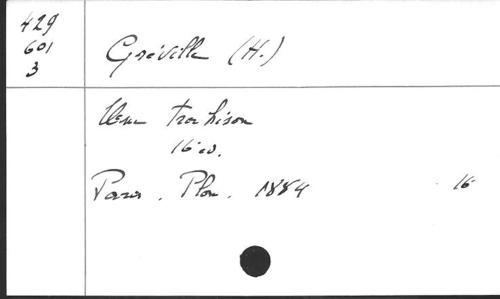 429
601
3
Gréville (H.)
Une trahison
16 éd.
Paris. Plon. 1884 16